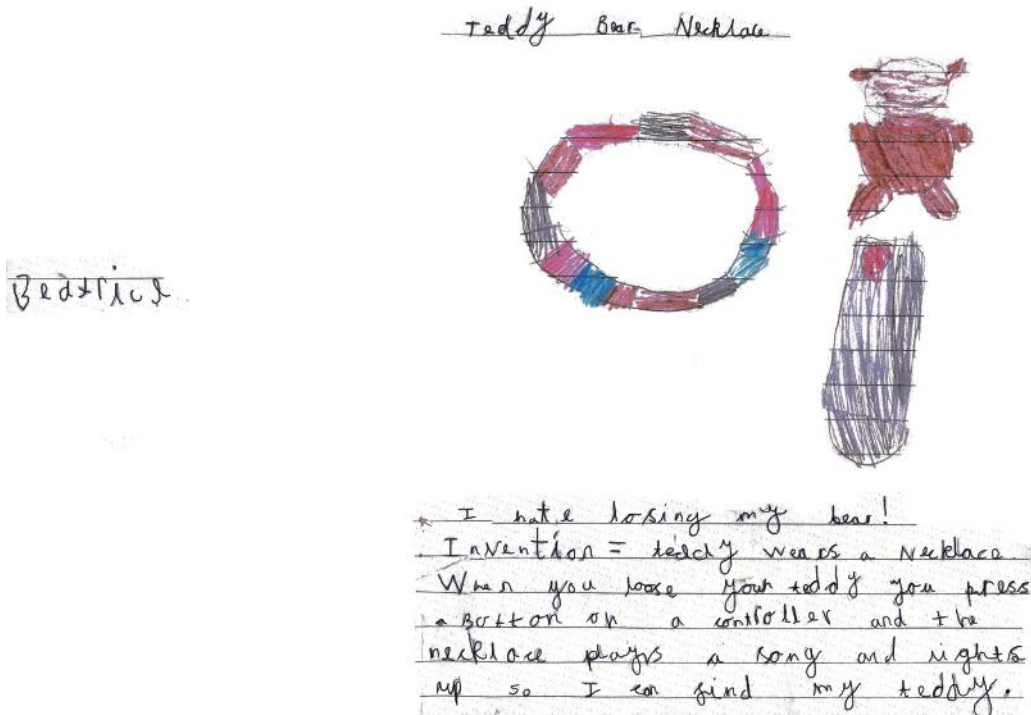 Teddy Bear Necklace
Beatrice
I hate losing my bear!
Invention = teddy wears a necklace.
When you loose your teddy you press
a button on a controller and the
necklace plays a song and lights
up so I can find my teddy.